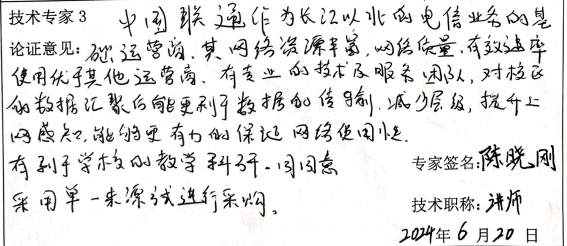 技术专家3 中国联通作为长江以北的电信业务的基
论证意见：础运营商，其网络资源丰富，网络质量，有效速率
使用优于其他运营商．有专业的技术及服务团队，对校区
的数据汇聚后能更利于数据的传输．减少层级，提升上
网感知，能够更有力的保证网络使用性．
有利于学校的教学科研．同意
采用单一来源式进行采购。
专家签名：陈晓刚
技术职称：讲师
2024年6月20日